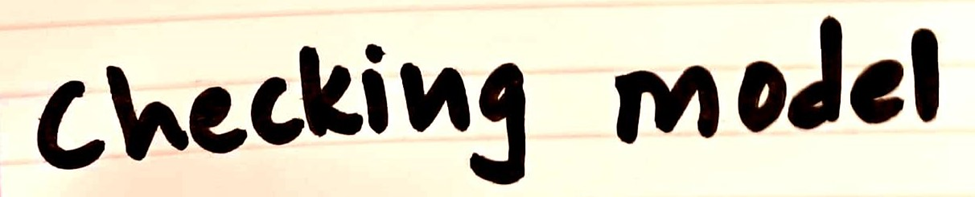 Checking model